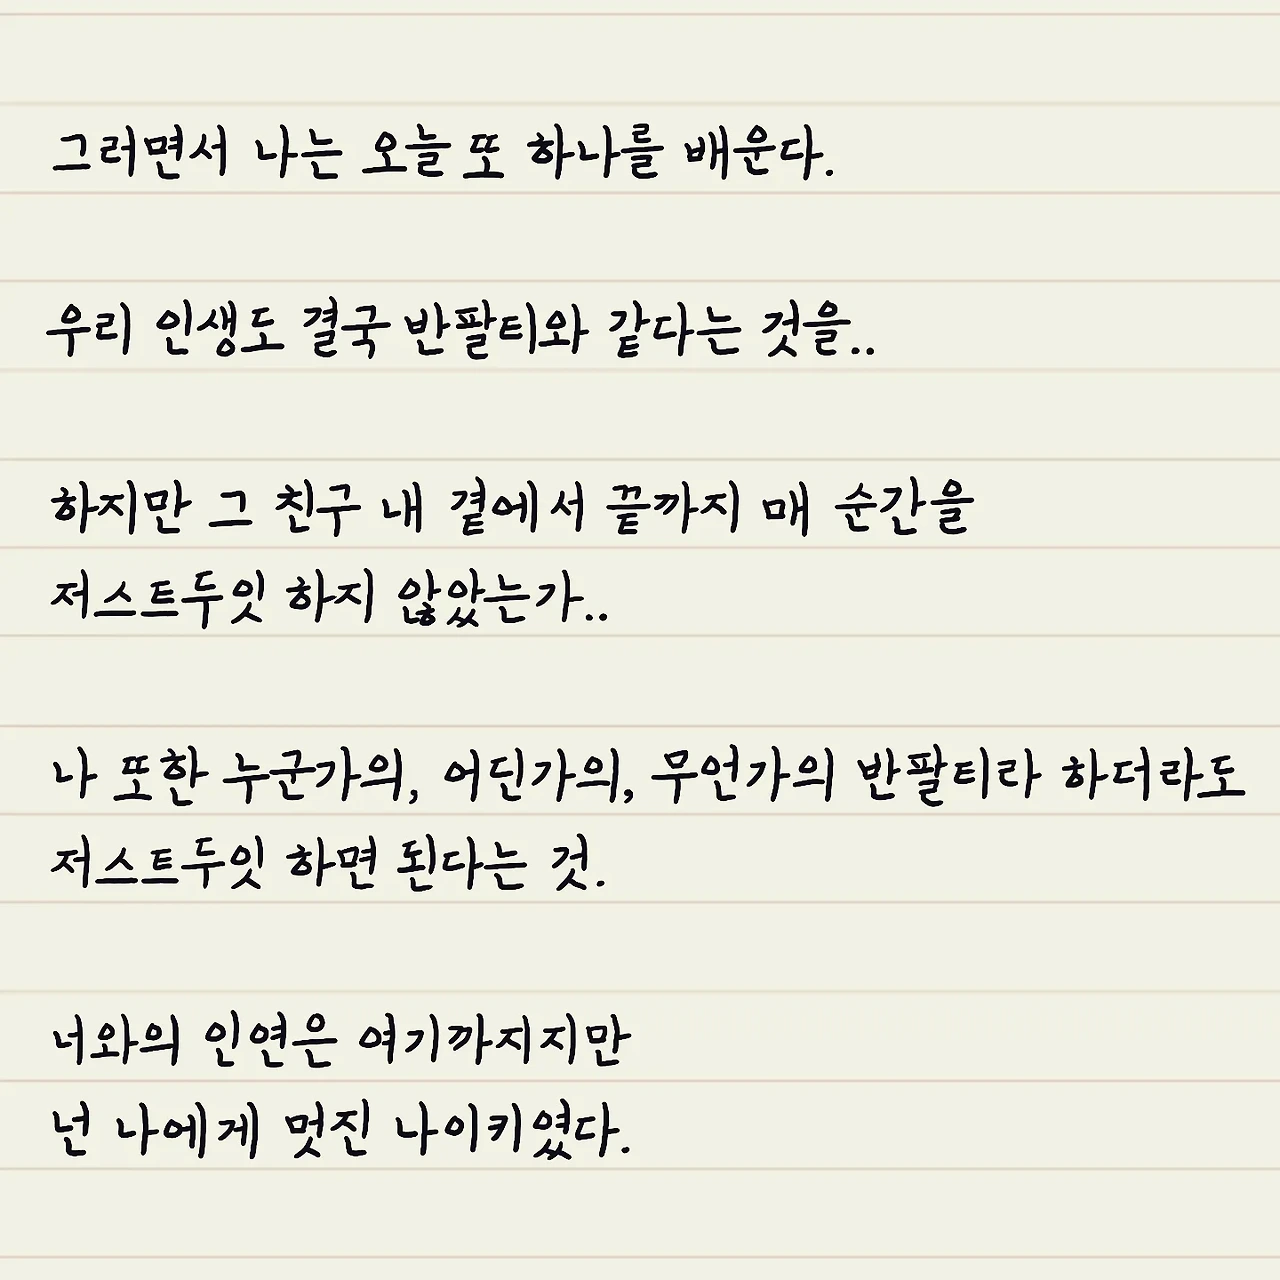 그러면서 나는 오늘 또 하나를 배운다.
우리 인생도 결국 반팔티와 같다는 것을..
하지만 그 친구 내 곁에서 끝까지 매 순간을
저스트두잇 하지 않았는가..
나 또한 누군가의, 어딘가의, 무언가의 반팔티라 하더라도
저스트두잇 하면 된다는 것.
너와의 인연은 여기까지지만
넌 나에게 멋진 나이키였다.